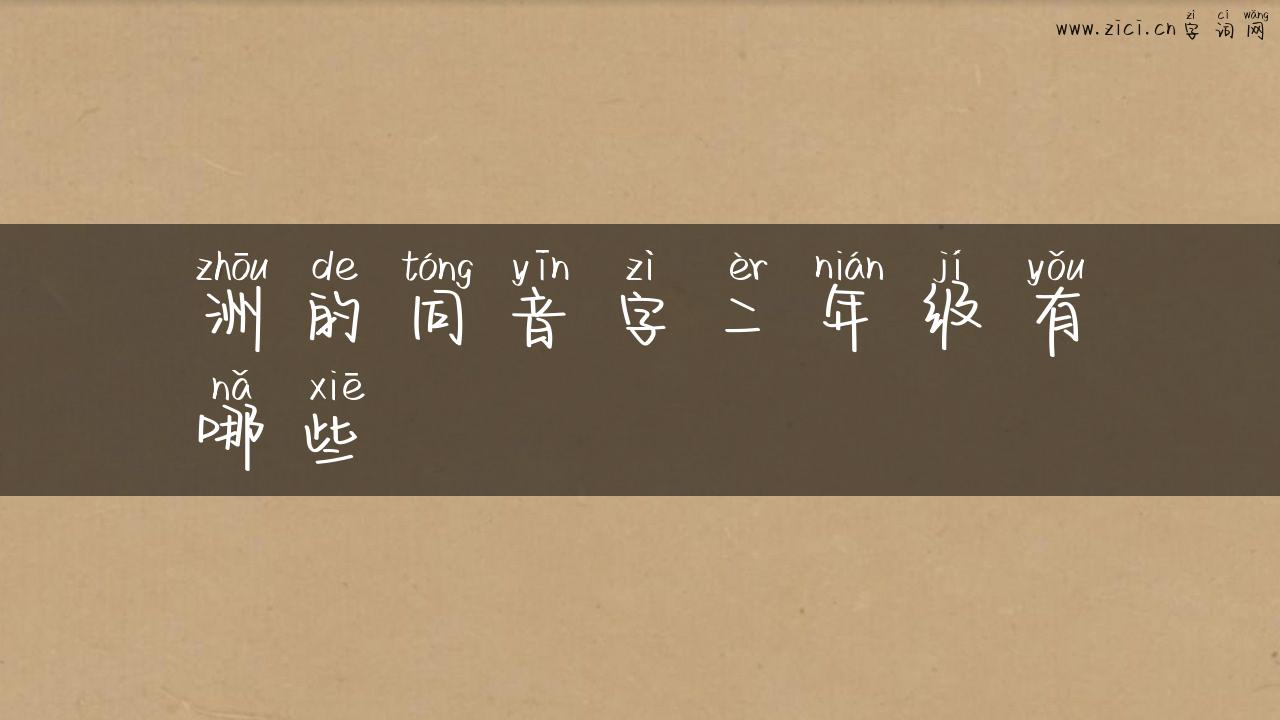 zì cí wǎng
www.zici.cn 字 词 网
zhōu de tóng yīn zì èr nián jí yǒu
洲 的 同 音 字 二 年 级 有
nǎ xiē
哪 些